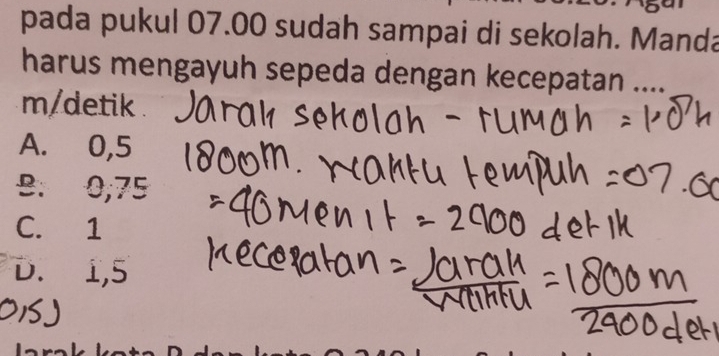 pada pukul 07.00 sudah sampai di sekolah. Manda
harus mengayuh sepeda dengan kecepatan ....
m/detik. Jarak sekolah - rumah = 1.8 k
A. 0,5 1800 m. waktu tempuh = 07.00
B. 0,75 = 40 menit = 2400 detik
C. 1
D. 1,5 Kecepatan = Jarak / Waktu = 1800 m / 2400 deti